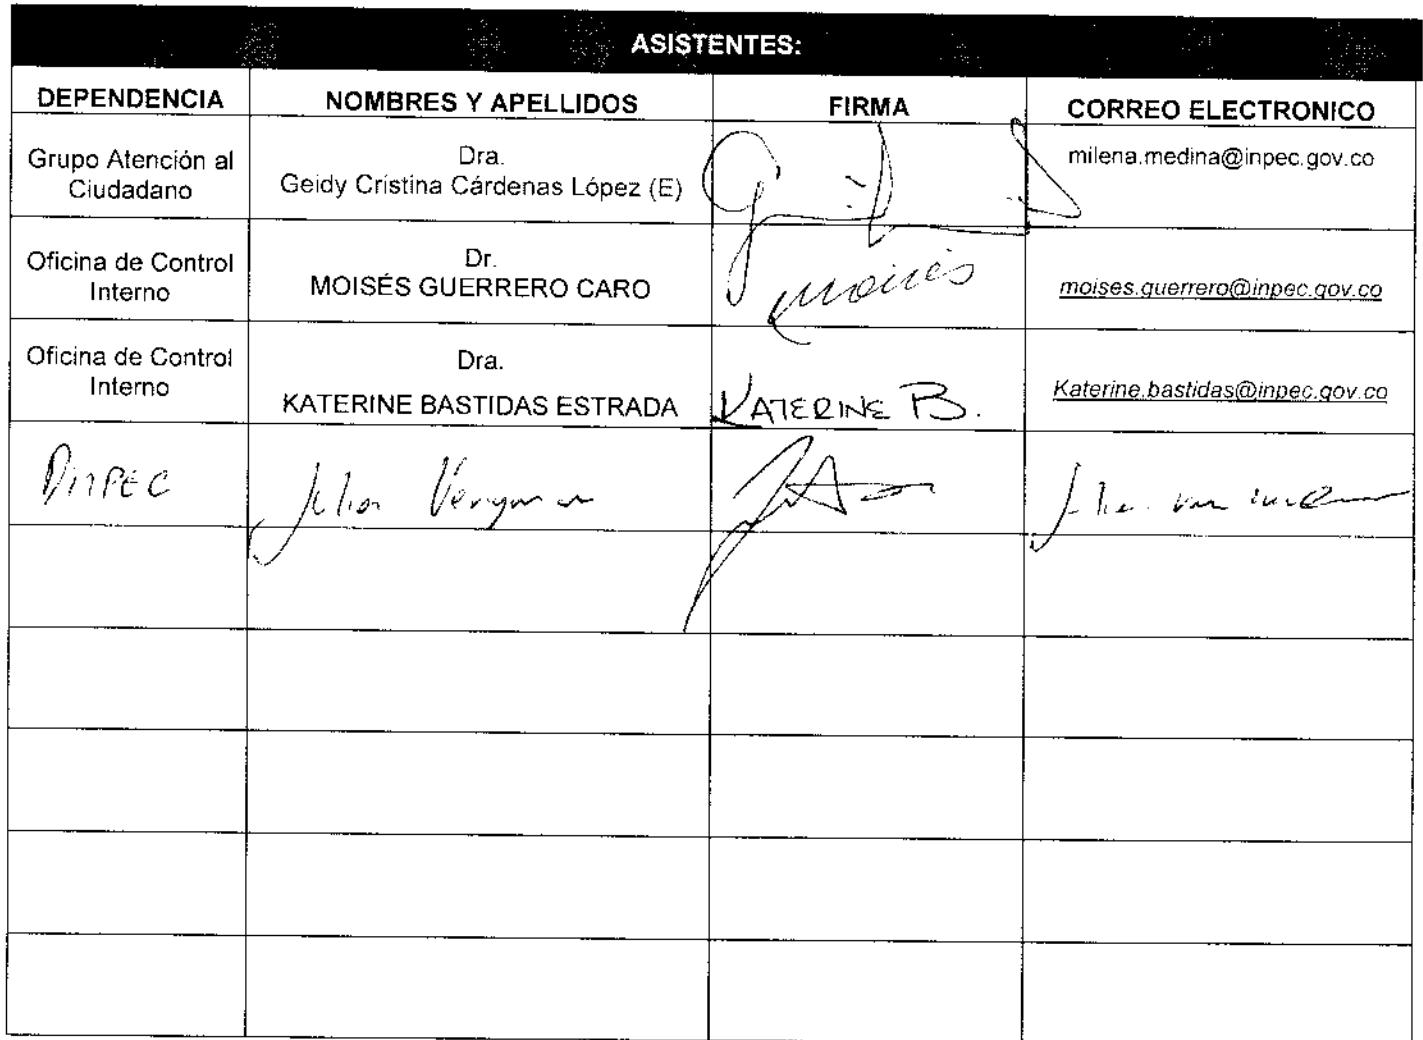 ASISTENTES:
DEPENDENCIA NOMBRES Y APELLIDOS FIRMA CORREO ELECTRONICO
Grupo Atención al
Ciudadano
Dra.
Geidy Cristina Cárdenas López (E)
milena.medina@inpec.gov.co
Oficina de Control
Interno
Dr.
MOISÉS GUERRERO CARO
moises
moises.guerrero@inpec.gov.co
Oficina de Control
Interno
Dra.
KATERINE BASTIDAS ESTRADA
KATERINE B.
Katerine.bastidas@inpec.gov.co
Julian